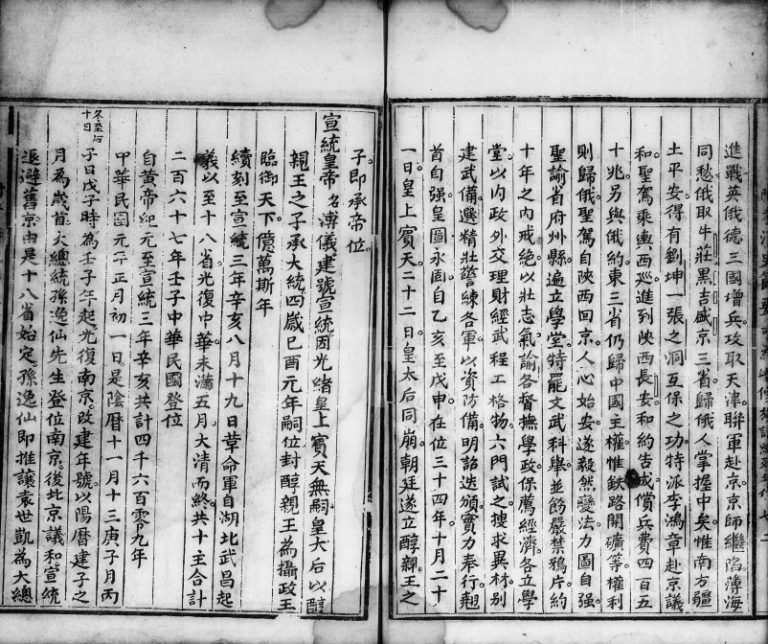 進戰英俄德三國增兵攻取天津聯軍赴京京師繼陷薄海
同愁俄取牛莊黑吉盛京三省歸俄人掌握中矣惟南方疆
土平安得有劉坤一張之洞互保之功特派李鴻章赴京議
和聖駕乘輿西巡進到陝西長安和約告成償兵費四百五
十兆另與俄約東三省仍歸中國主權惟鉄路開礦等權利
則歸俄聖駕自陝西回京人心始安遂毅然變法力圖自強
聖諭省府州縣遍立學堂特罷文武科舉並飭嚴禁鴉片約
十年之內戒絕以壯志氣諭各督撫學政保薦經濟各立學
堂以內政外交理財經武程工格物六門試之搜求異材別
建武備選精壯警練各軍以資防備明詔迭頒實力奉行翹
首自強皇圖永固自乙亥至戊申在位三十四年十月二十
一日皇上賓天二十二日皇太后同崩朝廷遂立醇親王之
子即承帝位
宣統皇帝名溥儀建號宣統因光緒皇上賓天無嗣皇太后以醇
親王之子承大統四歲己酉元年嗣位封醇親王為攝政王
臨御天下億萬斯年
續刻至宣統三年辛亥八月十九日革命軍自湖北武昌起
義以至十八省光復中華未滿五月大清而終共十主合計
二百六十七年壬子中華民國登位
自黃帝紀元至宣統三年辛亥共計四千六百零九年
中華民國元年正月初一日是陰曆十一月十三庚子月丙
冬至后十日
子日戊子時為壬子年起光復南京改建年號以陽曆建子之
月為歲首大總統孫逸仙先生登位南京後北京議和宣統
退避舊京由是十八省始定孫逸仙即推讓袁世凱為大總